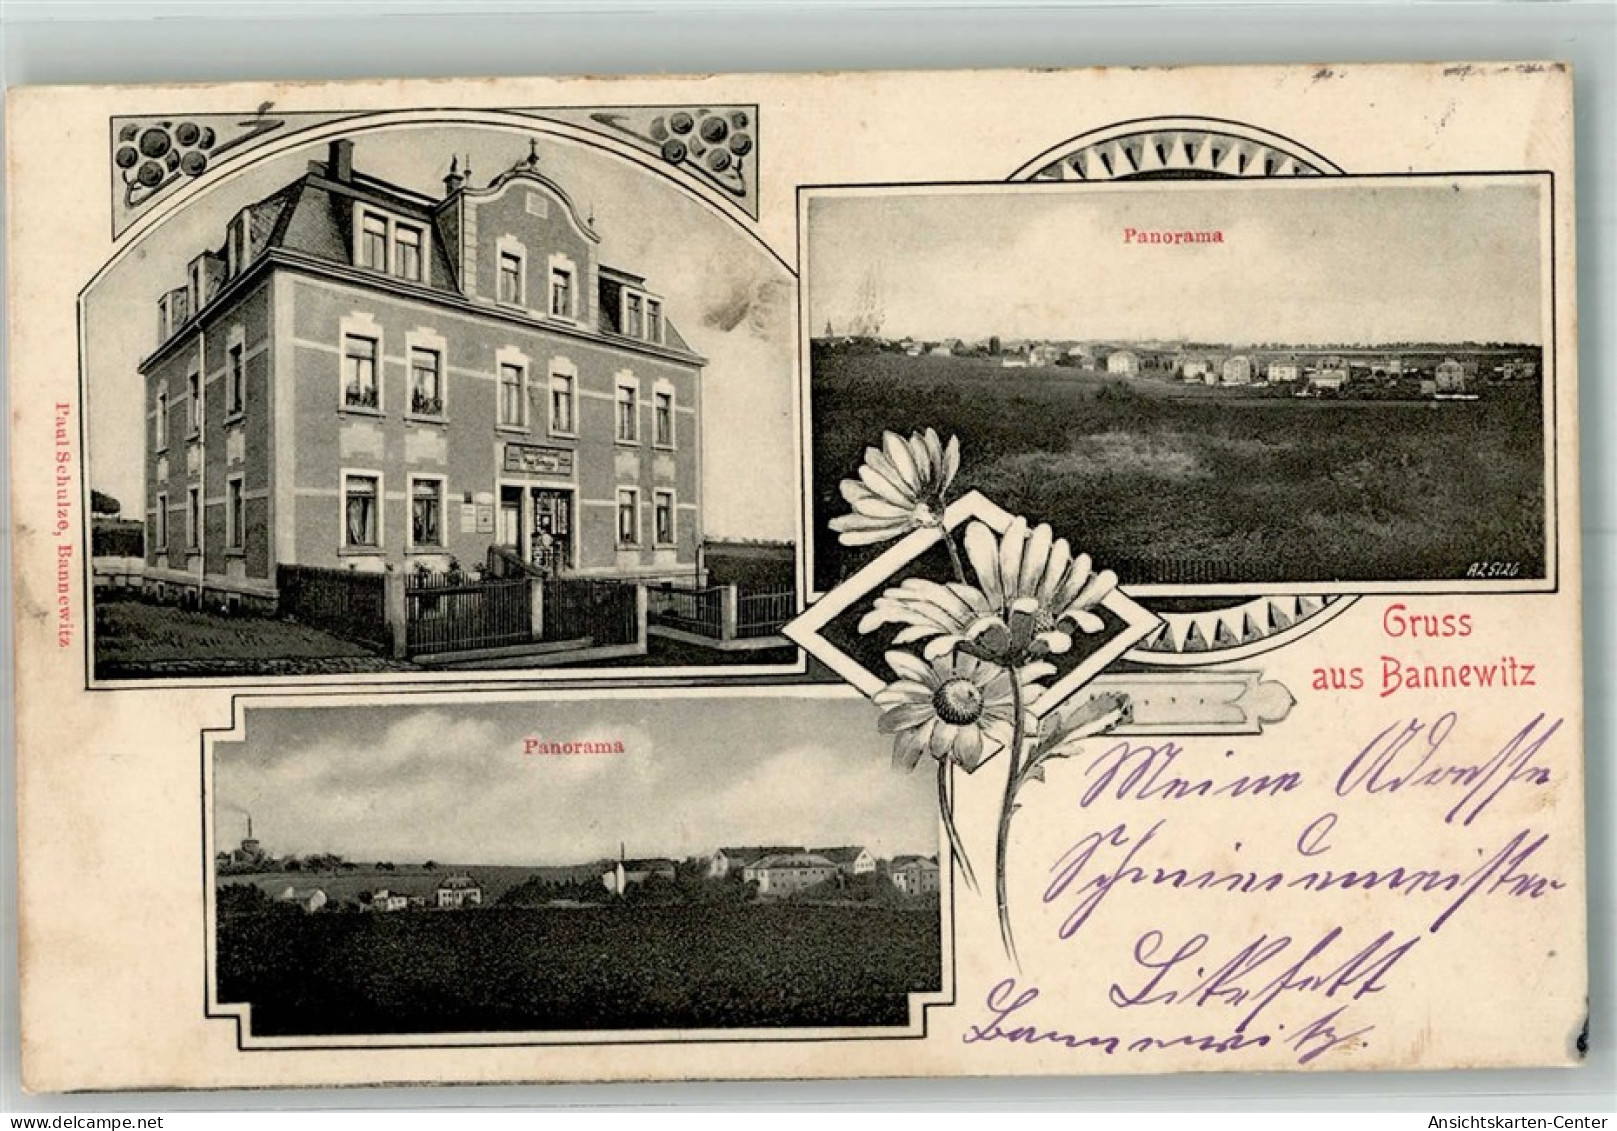 Paul Schulze, Bannewitz.
Panorama
AZ 5126
Gruss
aus Bannewitz
Panorama
Meine Adresse
Schmiedemeister
Bannewitz.
Ansichtskarten-Center